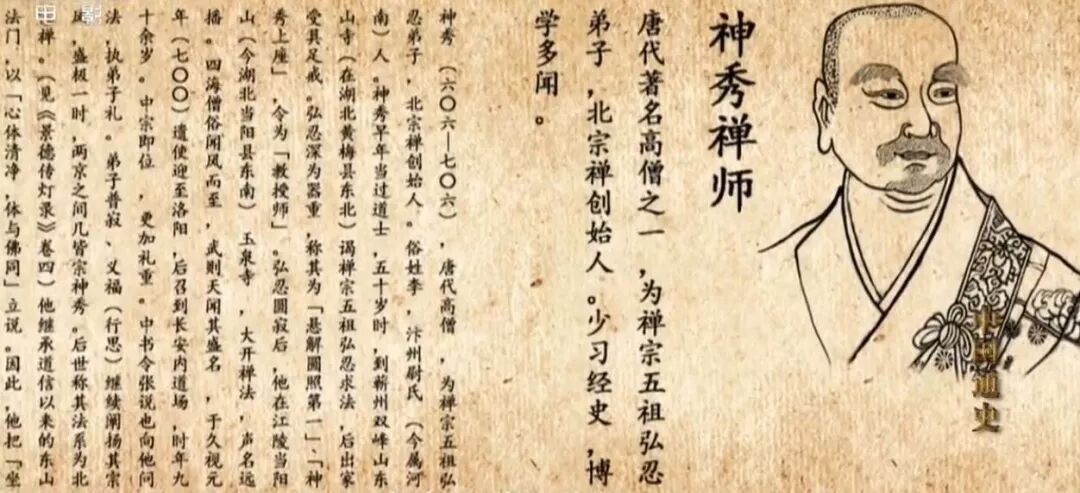 神秀禅师
唐代著名高僧之一,为禅宗五祖弘忍
弟子,北宗禅创始人。少习经史,博
学多闻。
神秀(六〇六—七〇六),唐代高僧,为禅宗五祖弘
忍弟子,北宗禅创始人。俗姓李,汴州尉氏(今属河
南)人。神秀早年当过道士,五十岁时,到蕲州双峰山东
山寺(在湖北黄梅县东北)谒禅宗五祖弘忍求法,后出家
受具足戒。弘忍深为器重,称其为「悬解圆照第一」、「神
秀上座」,令为「教授师」。弘忍圆寂后,他在江陵当阳
山(今湖北当阳县东南)玉泉寺,大开禅法,声名远
播。四海僧俗闻风而至,武则天闻其盛名,于久视元
年(七〇〇)遣使迎至洛阳,后召到长安内道场,时年九
十余岁。中宗即位,更加礼重。中书令张说也向他问
法,执弟子礼。弟子普寂、义福(行思)继续阐扬其宗
风,盛极一时,两京之间几皆宗神秀。后世称其法系为北
宗禅。(见《景德传灯录》卷四)他继承道信以来的东山
法门,以「心体清净,体与佛同」立说。因此,他把「坐
中国通史
电影